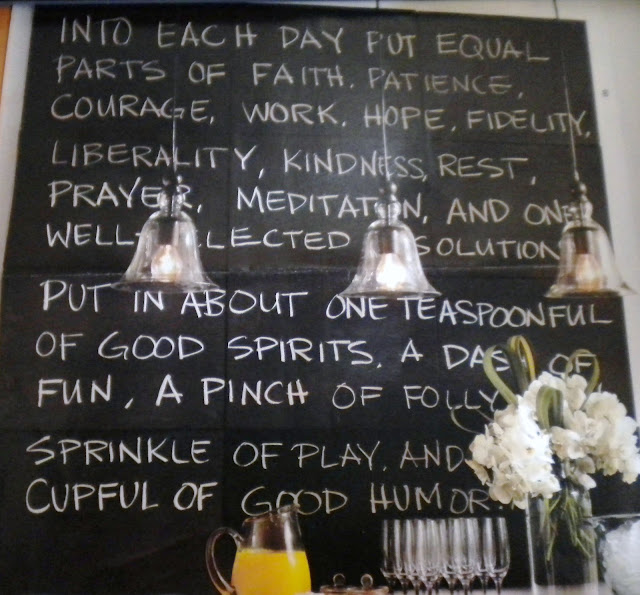 INTO EACH DAY PUT EQUAL
PARTS OF FAITH, PATIENCE,
COURAGE, WORK, HOPE, FIDELITY,
LIBERALITY, KINDNESS, REST,
PRAYER, MEDITATION, AND ONE
WELL-SELECTED RESOLUTION
PUT IN ABOUT ONE TEASPOONFUL
OF GOOD SPIRITS, A DASH OF
FUN, A PINCH OF FOLLY
SPRINKLE OF PLAY, AND
CUPFUL OF GOOD HUMOR.